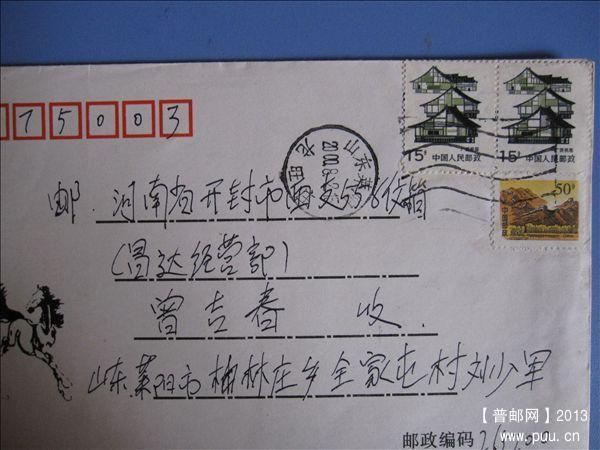 75003
15分 中国人民邮政
15分 中国人民邮政
50分
中国邮政
山东莱
2000
邮 河南省开封市邮政556信箱
(昌达经营部)
曾吉春 收
山东莱阳市柏林庄乡全家屯村刘少军
邮政编码
【普邮网】2013
www.puu.cn